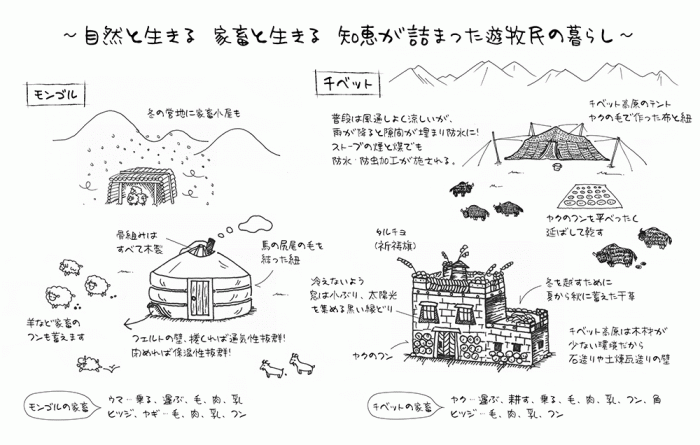 ～自然と生きる 家畜と生きる 知恵が詰まった遊牧民の暮らし～
モンゴル
冬の営地に家畜小屋も
骨組みは
すべて木製
馬の尻尾の毛を
結った紐
羊など家畜の
フンも蓄えます
フェルトの壁、捲くれば通気性抜群!
閉めれば保温性抜群!
モンゴルの家畜
ウマ…乗る、運ぶ、毛、肉、乳
ヒツジ、ヤギ…毛、肉、乳、フン
チベット
普段は風通しよく涼しいが、
雨が降ると隙間が埋まり防水に!
ストーブの煙と煤でも
防水・防虫加工が施される。
チベット高原のテント
ヤクの毛で作った布と紐
ヤクのフンを平べったく
延ばして乾す
タルチョ
(祈祷旗)
冷えないよう
窓は小ぶり、太陽光
を集める黒い縁どり
冬を越すために
夏から秋に蓄えた干草
ヤクのフン
チベット高原は木材が
少ない環境だから
石造りや土煉瓦造りの壁
チベットの家畜
ヤク…運ぶ、耕す、乗る、毛、肉、乳、フン、角
ヒツジ…毛、肉、乳、フン